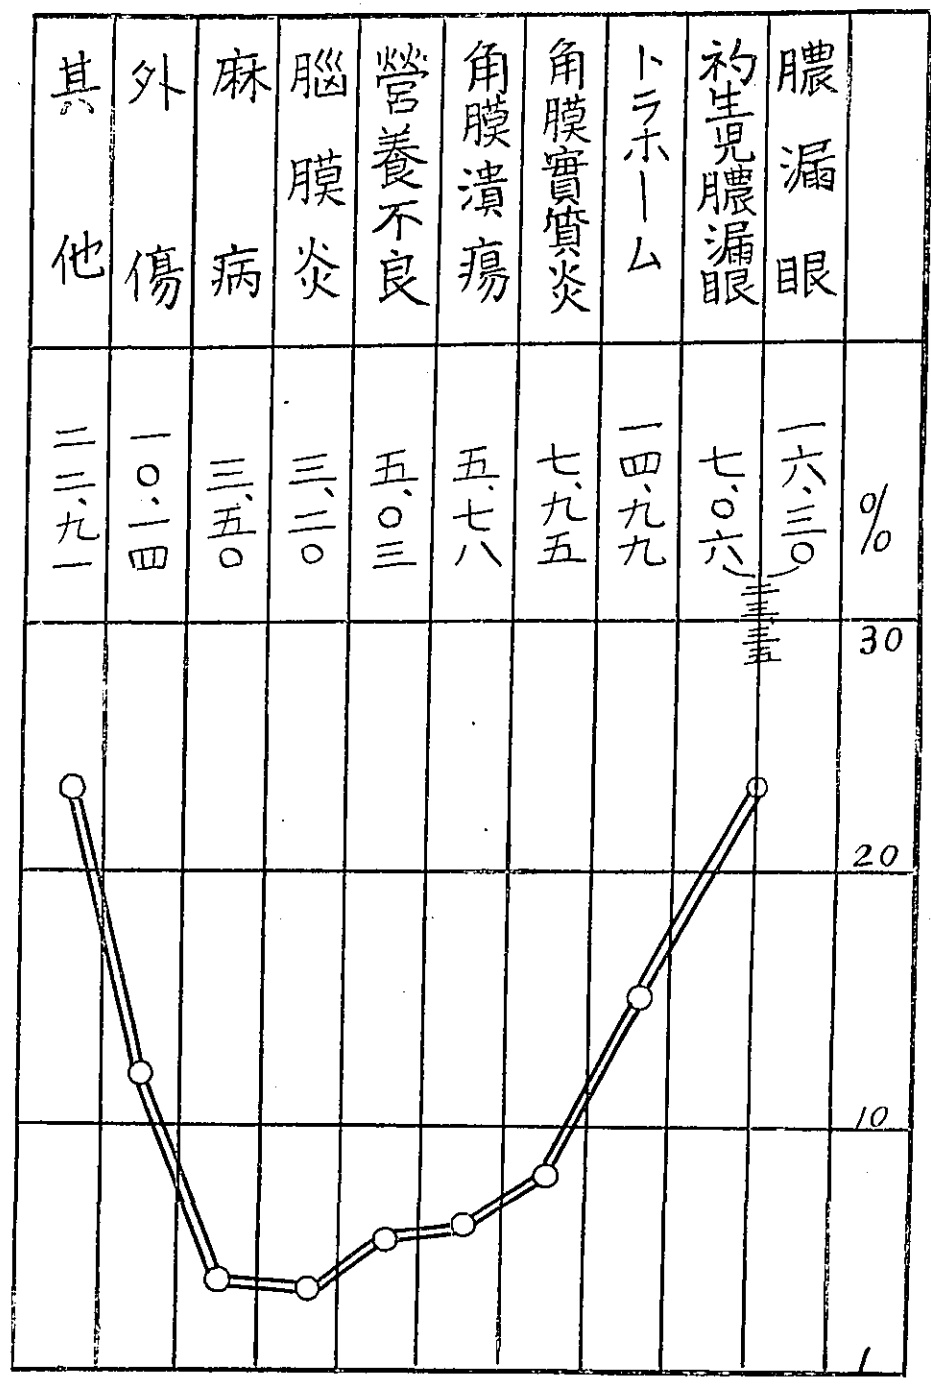 膿漏眼
初生児膿漏眼
トラホーム
角膜實質炎
角膜潰瘍
營養不良
腦膜炎
麻病
外傷
其他
%
一六.三〇
七.〇六
二三.三五
一四.九九
七.九五
五.七八
五.〇三
三.二〇
三.五〇
一〇.一四
二二.九一
30
20
10
1